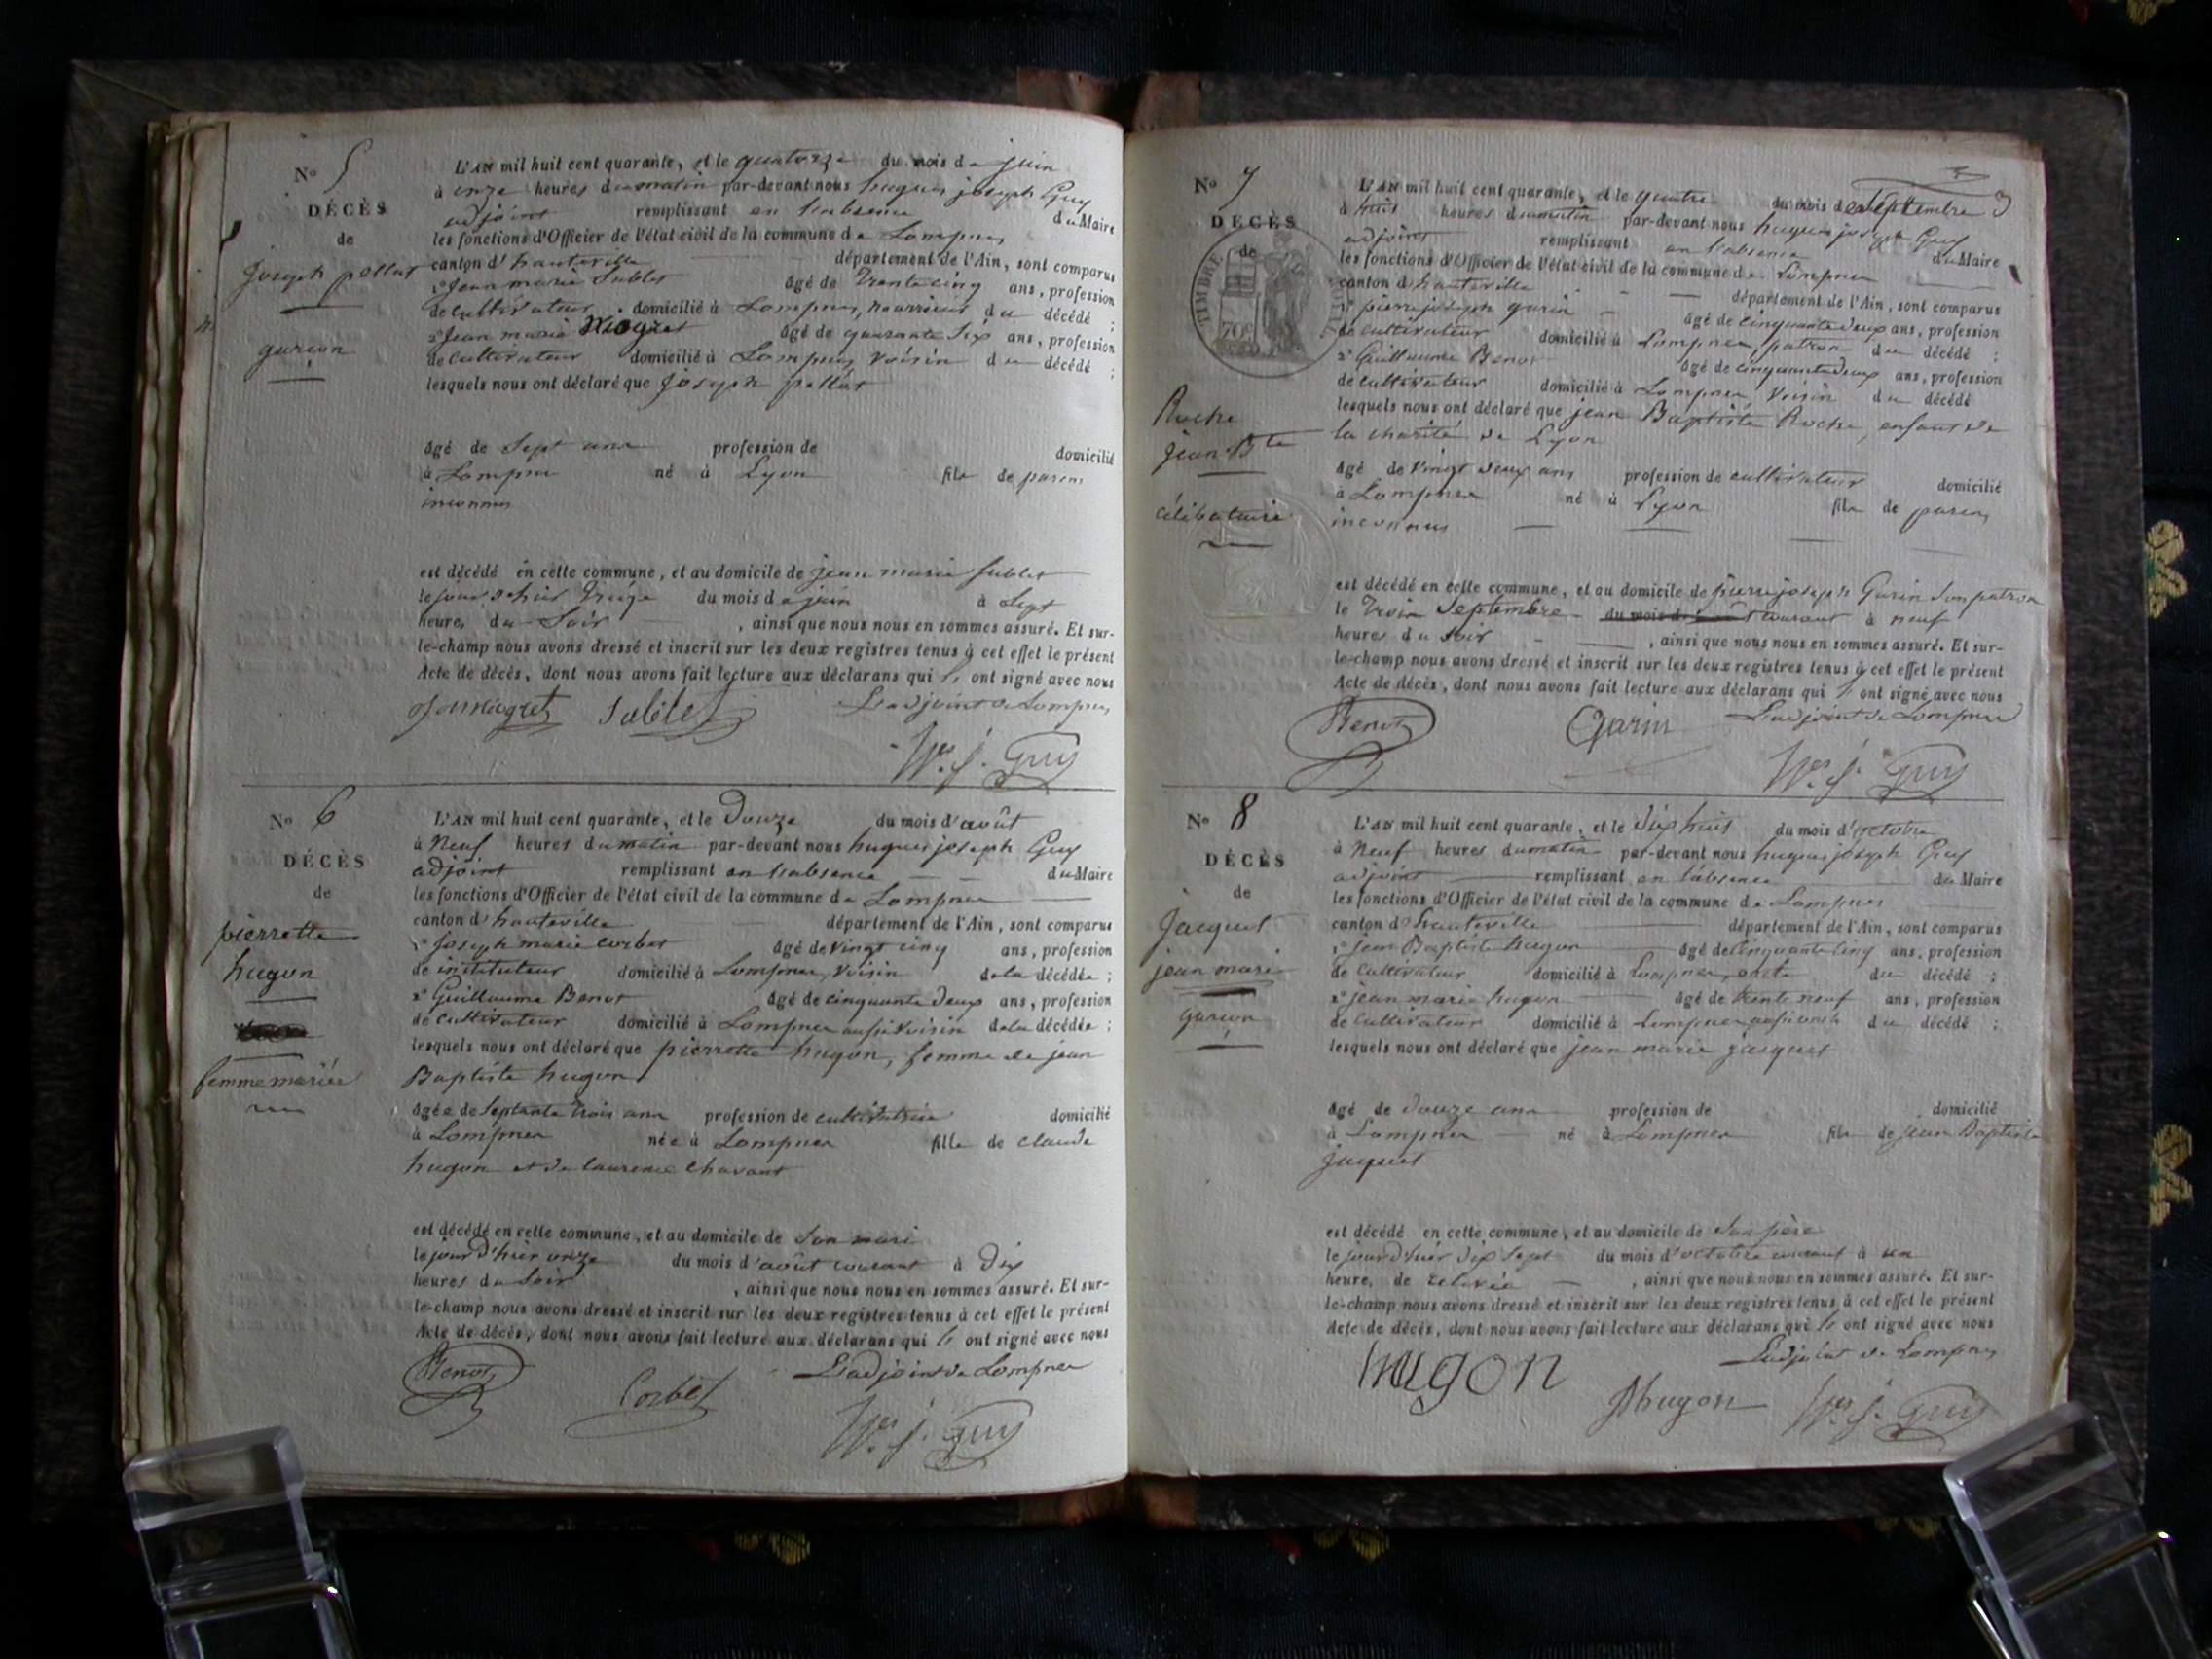 No 5
DÉCÈS
de
joseph pellat
garçon
L'AN mil huit cent quarante, et le quatorze du mois de juin
à onze heures du matin par-devant nous hugues joseph Guy
adjoint remplissant en l'absence du Maire
les fonctions d'Officier de l'état civil de la commune de Lompnes
canton d'hauteville département de l'Ain, sont comparus
1° Jean marie Sublet âgé de Trente cinq ans, profession
de cultivateur domicilié à Lompnes, nourricier du décédé ;
2° Jean marie Niogret âgé de quarante Six ans, profession
de cultivateur domicilié à Lompnes, voisin du décédé ;
lesquels nous ont déclaré que joseph pellat
âgé de Sept ans profession de domicilié
à Lompnes né à Lyon fils de parens
inconnus
est décédé en cette commune, et au domicile de jean marie Sublet
le jour d'hier Treize du mois de juin à Sept
heures du Soir , ainsi que nous nous en sommes assuré. Et sur-
le-champ nous avons dressé et inscrit sur les deux registres tenus à cet effet le présent
Acte de décès, dont nous avons fait lecture aux déclarans qui ont signé avec nous
L'adjoint de Lompnes
Niogret Sublet
Hes J. Guy
No 6
DÉCÈS
de
pierrette
hugon
femme mariée
L'AN mil huit cent quarante, et le Douze du mois d'août
à Neuf heures du matin par-devant nous hugues joseph Guy
adjoint remplissant en l'absence du Maire
les fonctions d'Officier de l'état civil de la commune de Lompnes
canton d'hauteville département de l'Ain, sont comparus
1° Joseph marie corbet âgé de vingt cinq ans, profession
de instituteur domicilié à Lompnes, voisin de la décédée ;
2° Guillaume Benot âgé de cinquante deux ans, profession
de cultivateur domicilié à Lompnes aussi voisin de la décédée ;
lesquels nous ont déclaré que pierrette hugon, femme de jean
Baptiste hugon
âgée de Septante Trois ans profession de cultivatrice domicilié
à Lompnes née à Lompnes fille de claude
hugon et de laurence Chavant
est décédé en cette commune, et au domicile de Son mari
le jour d'hier onze du mois d'août courant à Dix
heures du Soir , ainsi que nous nous en sommes assuré. Et sur-
le-champ nous avons dressé et inscrit sur les deux registres tenus à cet effet le présent
Acte de décès, dont nous avons fait lecture aux déclarans qui ont signé avec nous
L'adjoint de Lompnes
Benot Corbet
Hes J. Guy
No 7
DÉCÈS
de
TIMBRE
70c
Roche
jean Bte
célibataire
L'AN mil huit cent quarante, et le quatre du mois de Septembre
à huit heures du matin par-devant nous hugues joseph Guy
adjoint remplissant en l'absence du Maire
les fonctions d'Officier de l'état civil de la commune de Lompnes
canton d'hauteville département de l'Ain, sont comparus
1° pierre joseph garin âgé de cinquante deux ans, profession
de cultivateur domicilié à Lompnes patron du décédé ;
2° Guillaume Benot âgé de cinquante deux ans, profession
de cultivateur domicilié à Lompnes, voisin du décédé
lesquels nous ont déclaré que jean Baptiste Roche, enfant de
la charité de Lyon
âgé de vingt deux ans profession de cultivateur domicilié
à Lompnes né à Lyon fils de parens
inconnus
est décédé en cette commune, et au domicile de pierre joseph Garin Son patron
le Trois Septembre du mois d courant à neuf
heures du Soir , ainsi que nous nous en sommes assuré. Et sur-
le-champ nous avons dressé et inscrit sur les deux registres tenus à cet effet le présent
Acte de décès, dont nous avons fait lecture aux déclarans qui ont signé avec nous
Benot Garin L'adjoint de Lompnes
Hes J. Guy
No 8
DÉCÈS
de
Jacquet
jean marie
garçon
L'AN mil huit cent quarante, et le dix huit du mois d'octobre
à Neuf heures du matin par-devant nous hugues joseph Guy
adjoint remplissant en l'absence du Maire
les fonctions d'Officier de l'état civil de la commune de Lompnes
canton d'hauteville département de l'Ain, sont comparus
1° Jean Baptiste hugon âgé de cinquante cinq ans, profession
de Cultivateur domicilié à Lompnes, oncle du décédé ;
2° jean marie hugon âgé de trente neuf ans, profession
de Cultivateur domicilié à Lompnes aussi oncle du décédé ;
lesquels nous ont déclaré que jean marie jacquet
âgé de douze ans profession de domicilié
à Lompnes né à Lompnes fils de jean Baptiste
jacquet
est décédé en cette commune, et au domicile de Son père
le jour d'hier dix Sept du mois d'octobre courant à un
heure, de relevée , ainsi que nous nous en sommes assuré. Et sur-
le-champ nous avons dressé et inscrit sur les deux registres tenus à cet effet le présent
Acte de décès, dont nous avons fait lecture aux déclarans qui ont signé avec nous
L'adjoint de Lompnes
hugon
Jhugon Hes J. Guy